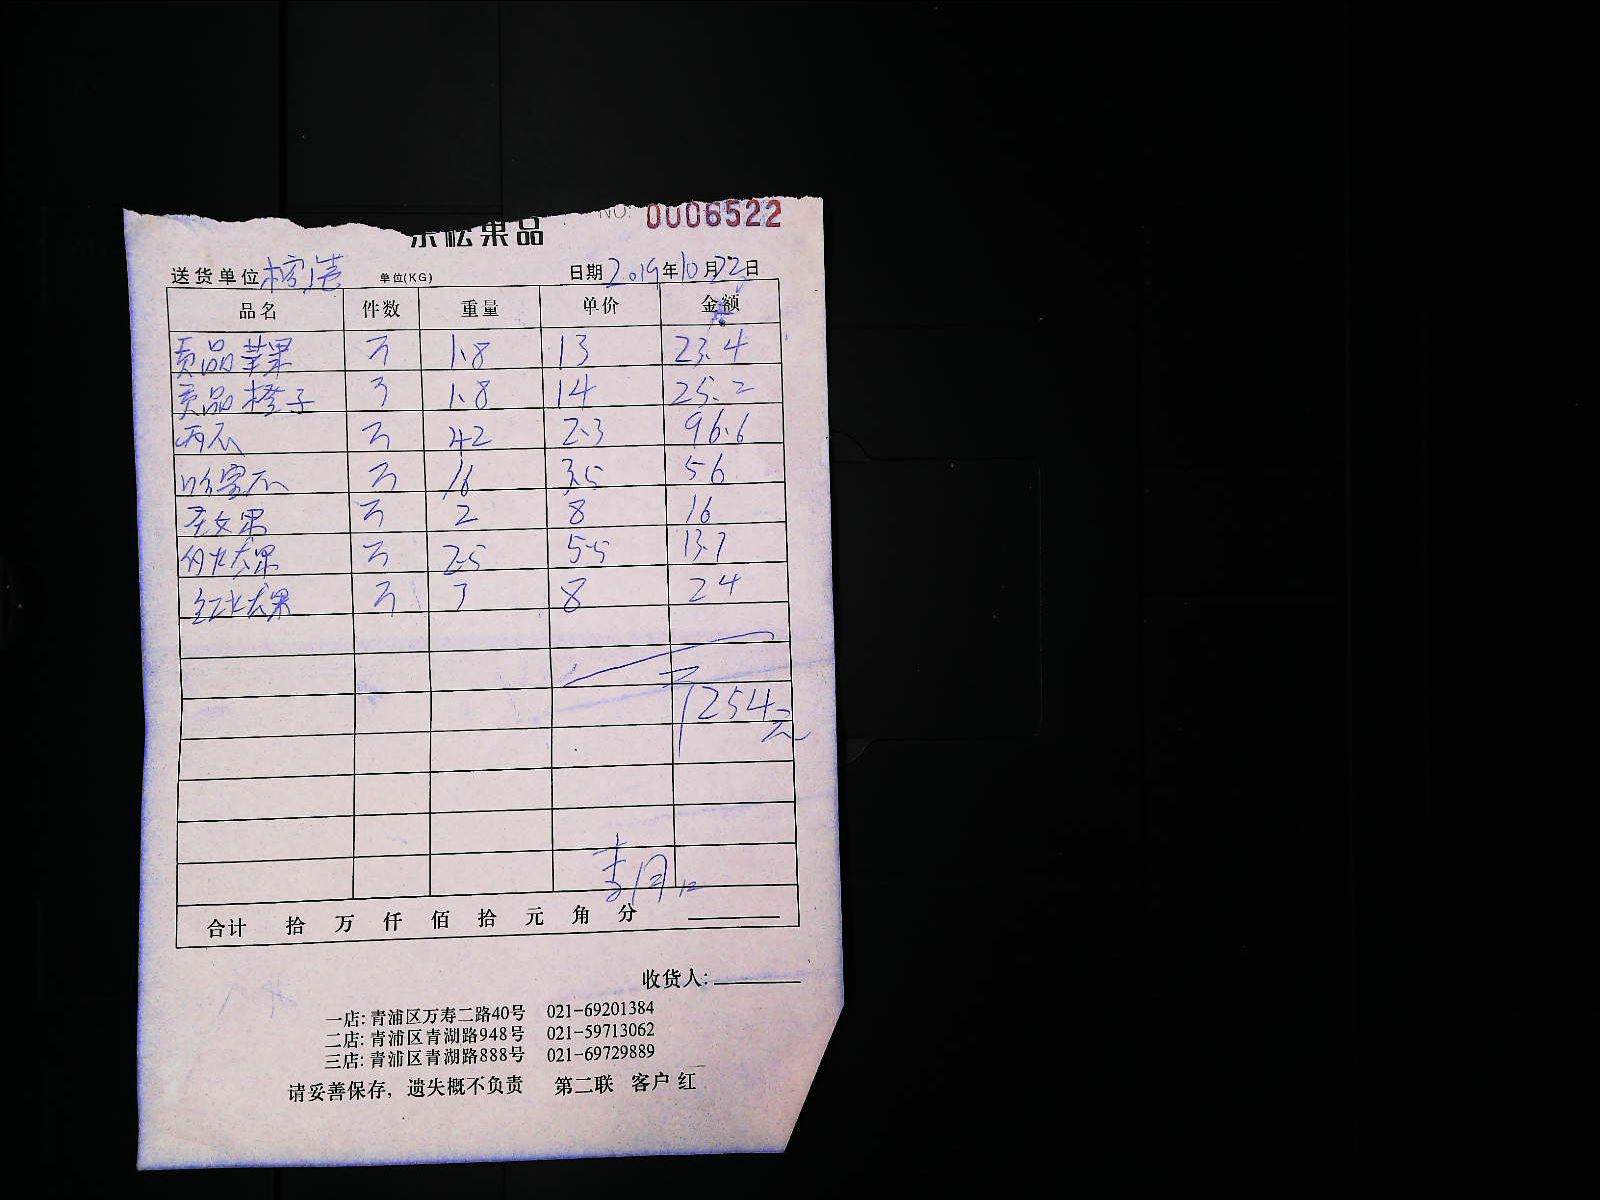 NO: 0006522
松果品
送货单位 单位(KG) 日期 2019年10月22日
品名 件数 重量 单价 金额
贡品苹果 1.8 13 23.4
贡品橙子 1.8 14 25.2
西瓜 42 2.3 96.6
哈密瓜 16 3.5 56
圣女果 2 8 16
火龙果 2.5 5.5 13.7
红火龙果 3 8 24
254元
合计 拾 万 仟 佰 拾 元 角 分
收货人:
一店: 青浦区万寿二路40号 021-69201384
二店: 青浦区青湖路948号 021-59713062
三店: 青浦区青湖路888号 021-69729889
请妥善保存, 遗失概不负责 第二联 客户 红